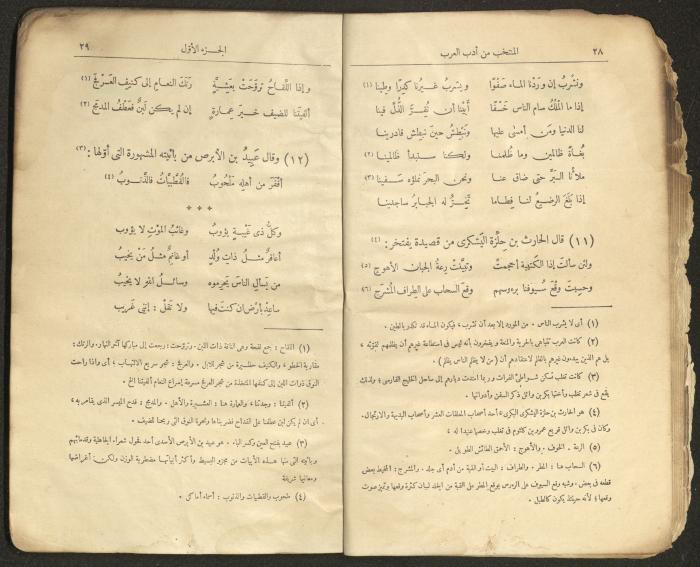 ٢٨
المنتخب من أدب العرب
ونشرب إن وردنا الماء صفوا ويشرب غيرنا كدرا وطينا (١)
إذا ما الملك سام الناس خسفا أبينا أن نقر الذل فينا
لنا الدنيا ومن أمسى عليها ونبطش حين نبطش قادرينا
بغاة ظالمين وما ظلمنا ولكنا سنبدأ ظالمينا (٢)
ملأنا البر حتى ضاق عنا ونحن البحر نملؤه سفينا (٣)
إذا بلغ الرضيع لنا فطاما تخر له الجبابر ساجدينا
(١١) قال الحارث بن حلزة اليشكرى من قصيدة يفتخر : (٤)
ولئن سألت إذا الكتيبة أحجمت وتبينت رعة الجبان الأهوج (٥)
وحسبت وقع سيوفنا برءوسهم وقع السحاب على الطراف المشرج (٦)
(١) أى لا يشرب الناس . من المورد إلا بعد أن نشرب ، فيكون الماء قد تكدر بالطين .
(٢) كانت العرب تتباهى بالحرية والمنعة ويفخرون بأنه ليس فى استطاعة غيرهم أن يظلمهم لقوتهم ،
بل هم الذين يبدءون غيرهم بالظلم لاعتقادهم أن (من لا يظلم الناس يظلم) .
(٣) كانت تغلب تسكن شواطئ الفرات وربما امتدت ديارهم إلى ساحل الخليج الفارسى ؛ ولذلك
يقع فى شعر تغلب وأختها بكر بن وائل ذكر السفن وأدواتها .
(٤) هو الحارث بن حلزة اليشكرى البكرى أحد أصحاب المعلقات العشر وأصحاب البديهة والارتجال .
وكان فى بكر بن وائل قريع عمرو بن كلثوم فى تغلب وخصما عنيدا له .
(٥) الرعة . الخوف . والأهوج : الأحمق الطائش الطويل .
(٦) السحاب هنا : المطر . والطراف : البيت أو القبة من أدم أى جلد . والمشرج : المخيط بعض
قطعه فى بعض . وشبه وقع السيوف على الرءوس بوقع المطر على القبة من الجلد لبيان كثرة وقعها وتميز صوت
وقعها ؛ لأنه حينئذ يكون كالطبل .
الجزء الأول
٢٩
وإذا اللقاح تروحت بعشية رتك النعام إلى كنيف العرفج (١)
ألفيتنا للضيف خير عمارة إن لم يكن لبن فعطف المدمج (٢)
(١٢) وقال عبيد بن الأبرص من بائيته المشهورة التى أولها : (٣)
أقفر من أهله ملحوب فالقطبيات فالذنوب (٤)
* * *
وكل ذى غيبة يؤوب وغائب الموت لا يؤوب
أعاقر مثل ذات ولد أو غانم مثل من يخيب
من يسأل الناس يحرموه وسائل الله لا يخيب
ساعد بأرض إن كنت فيها ولا تقل : إننى غريب
(١) اللقاح : جمع لقحة وهى الناقة ذات اللبن . وتروحت : رجعت إلى مباركها آخر النهار . والرتك :
مقاربة الخطو ، والكنيف حظيرة من شجر للإبل . والعرفج : شجر سريع الالتهاب ، أى وإذا راحت
النوق ذوات اللبن إلى كنفها المتخذة من شجر العرفج مسرعة إسراع النعام ألفيتنا الخ .
(٢) ألفيتنا : وجدتنا ، والعمارة هنا : العشيرة والأهل . والمدمج : قدح الميسر الذى يقامر به ،
أى إن لم يكن لبن عطفنا على القداح فضربناها ونحرنا النوق التى ربحنا للضيف .
(٣) عبيد بفتح العين وكسر الباء . هو عبيد بن الأبرص الأسدى أحد فحول شعراء الجاهلية وقدمائهم
وبائيته التى منها هذه الأبيات من مجزو البسيط وأكثر أبياتها مضطربة الوزن ولكن أغراضها
ومعانيها شريفة
(٤) ملحوب والقطبيات والذنوب : أسماء أماكن .